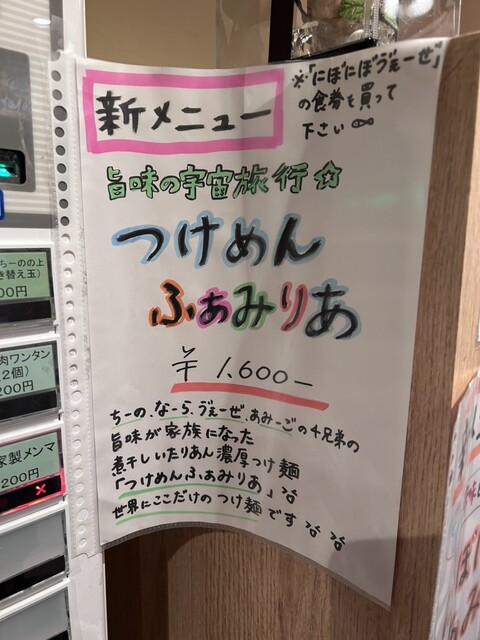 新メニュー
※「にぼにぼゔぇーぜ」
の食券を買って
下さい
旨味の宇宙旅行☆
つけめん
ふぁみりあ
¥1,600-
ちーの、なーら、ゔぇーぜ、あみーごの4兄弟の
旨味が家族になった
煮干しいたりあん濃厚つけ麺
「つけめんふぁみりあ」
世界にここだけのつけ麺です
ちーのの上
き替え玉)
00円
肉ワンタン
2個)
200円
家製メンマ
200円